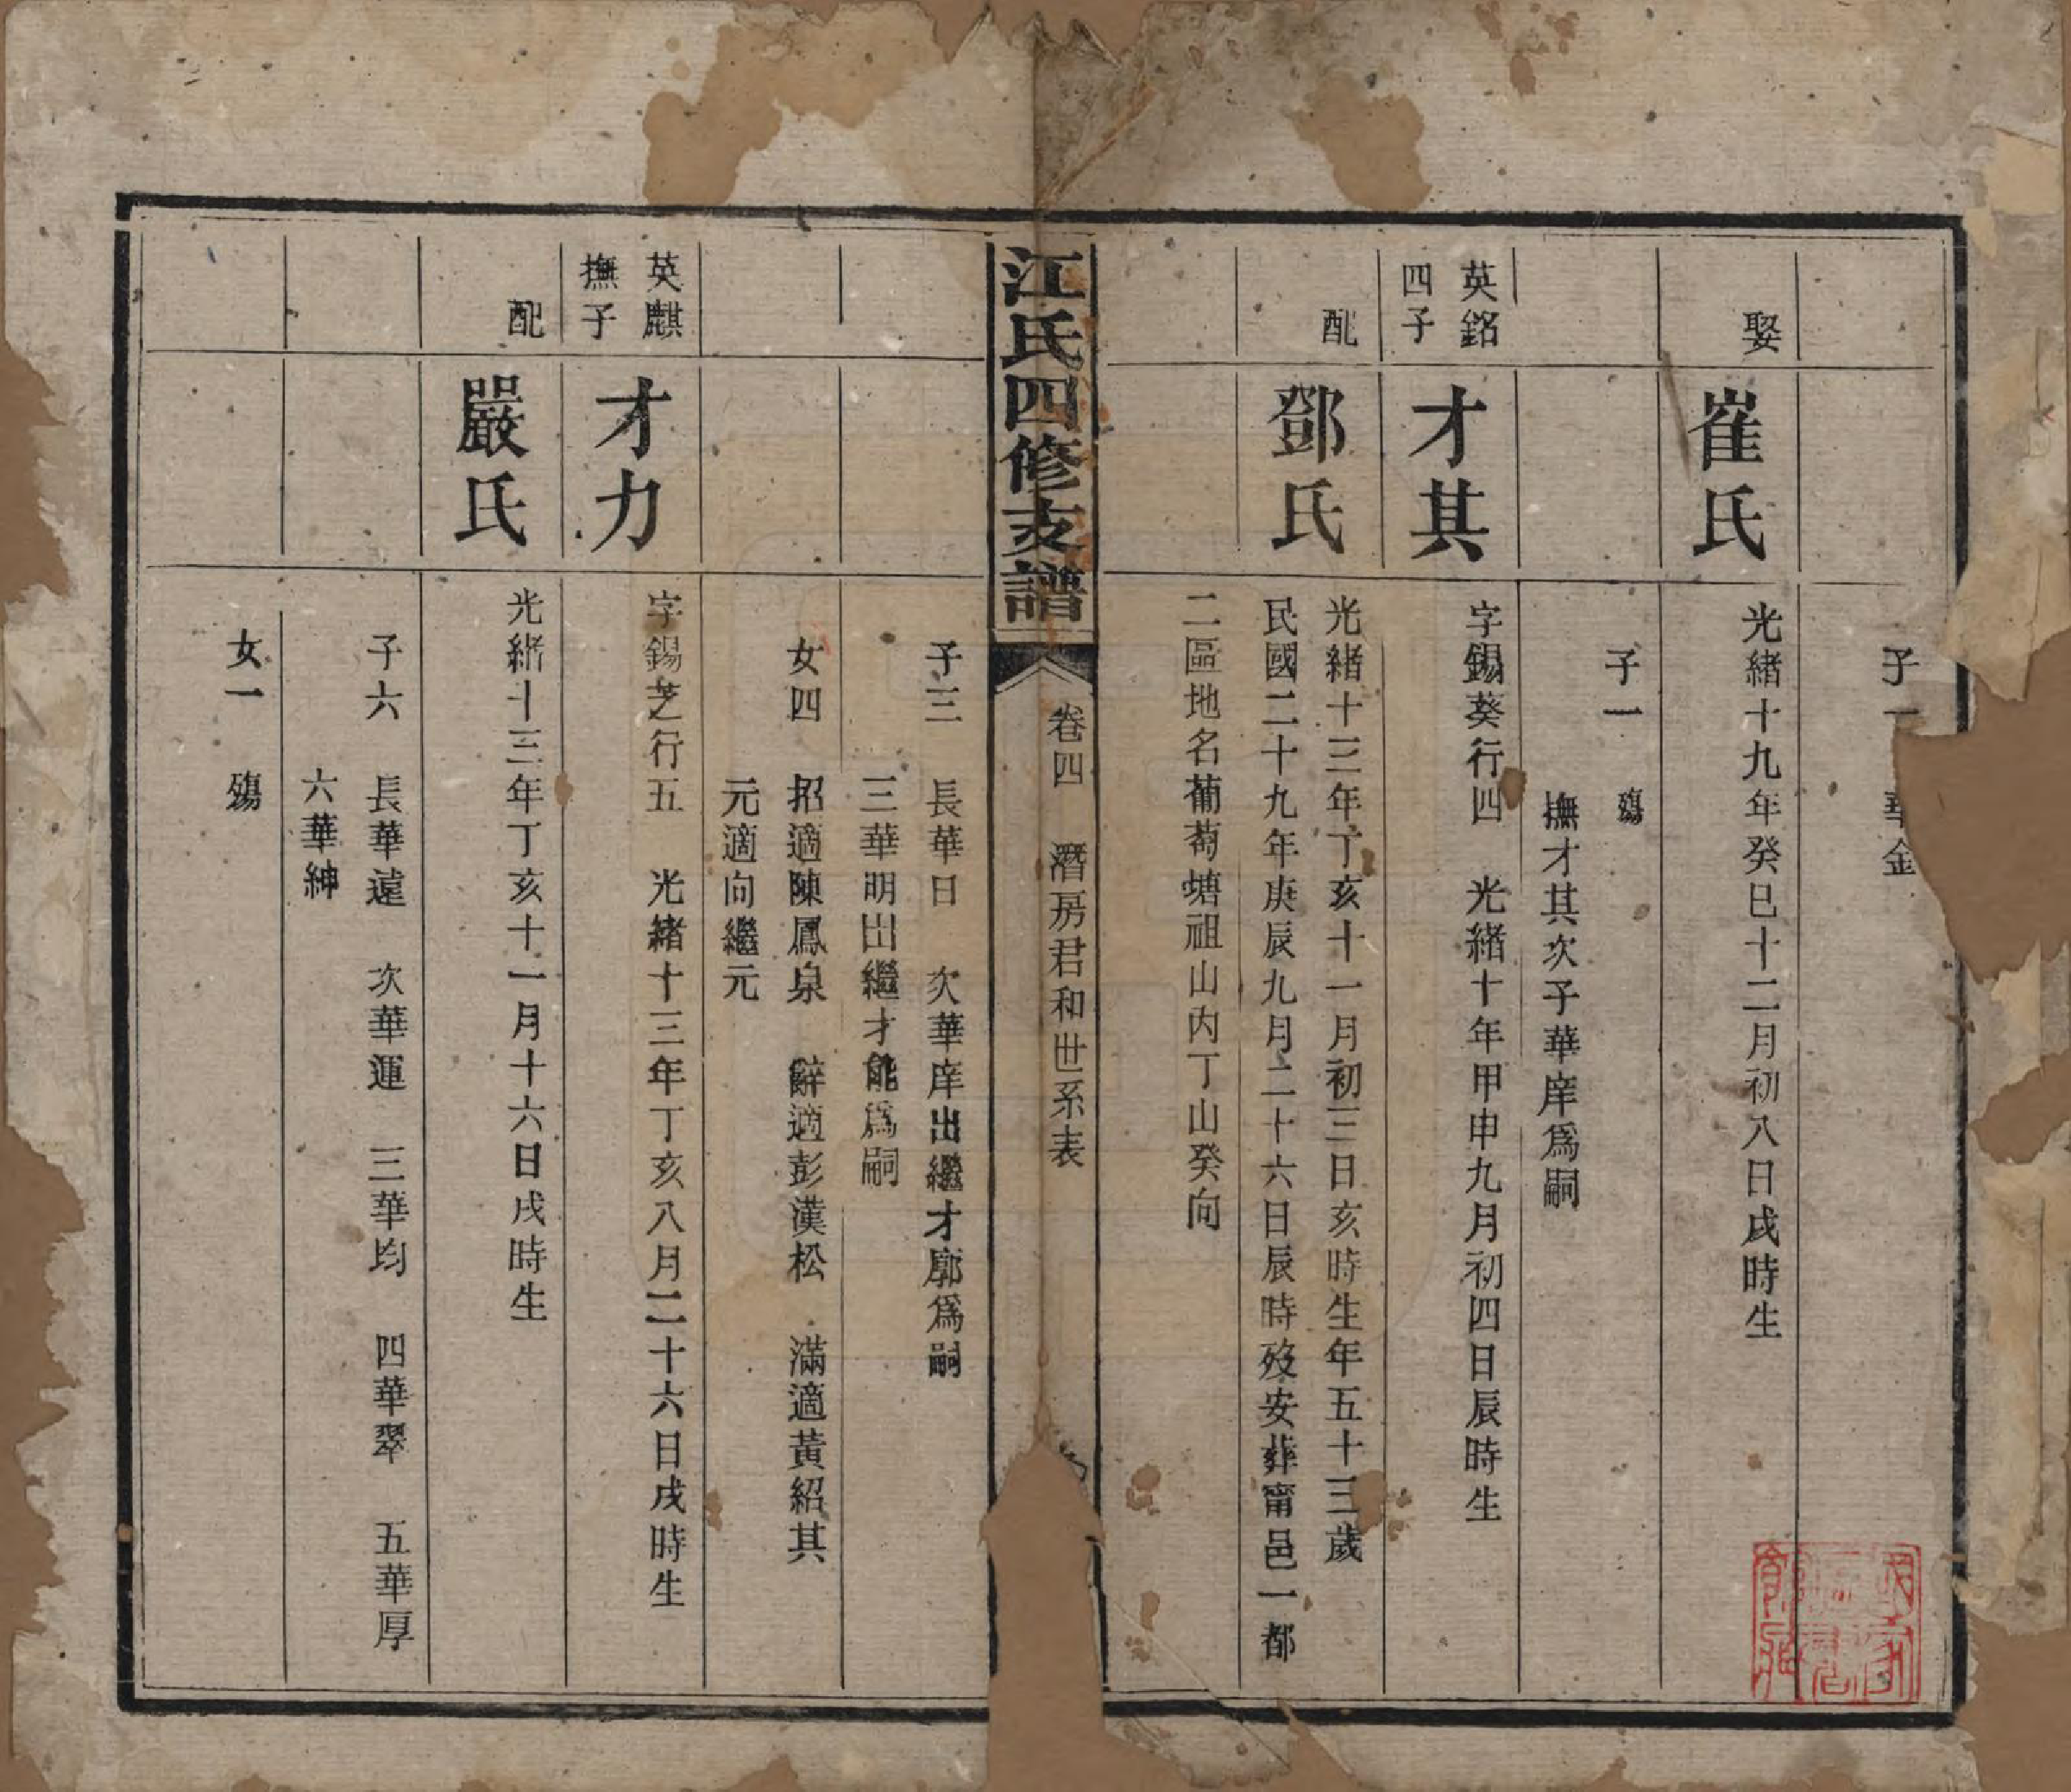 子一　華金
娶　崔氏　光緒十九年癸巳十二月初八日戌時生
子一　殤
撫才其次子華庠爲嗣
英銘四子　才其　字錫葵行四　光緒十年甲申九月初四日辰時生
配　鄧氏　光緒十三年丁亥十一月初三日亥時生年五十三歲
民國二十九年庚辰九月二十六日辰時歿安葬甯邑一都
二區地名葡萄塘祖山内丁山癸向
江氏四修支譜　卷四　潛房君和世系表
子三　長華日　次華庠出繼才廓爲嗣
三華明出繼才能爲嗣
女四　招適陳鳳泉　辭適彭漢松　滿適黃紹其
元適向繼元
英麒撫子　才力　字錫芝行五　光緒十三年丁亥八月二十六日戌時生
配　嚴氏　光緒十三年丁亥十一月十六日戌時生
子六　長華遠　次華運　三華均　四華翠　五華厚
六華紳
女一　殤